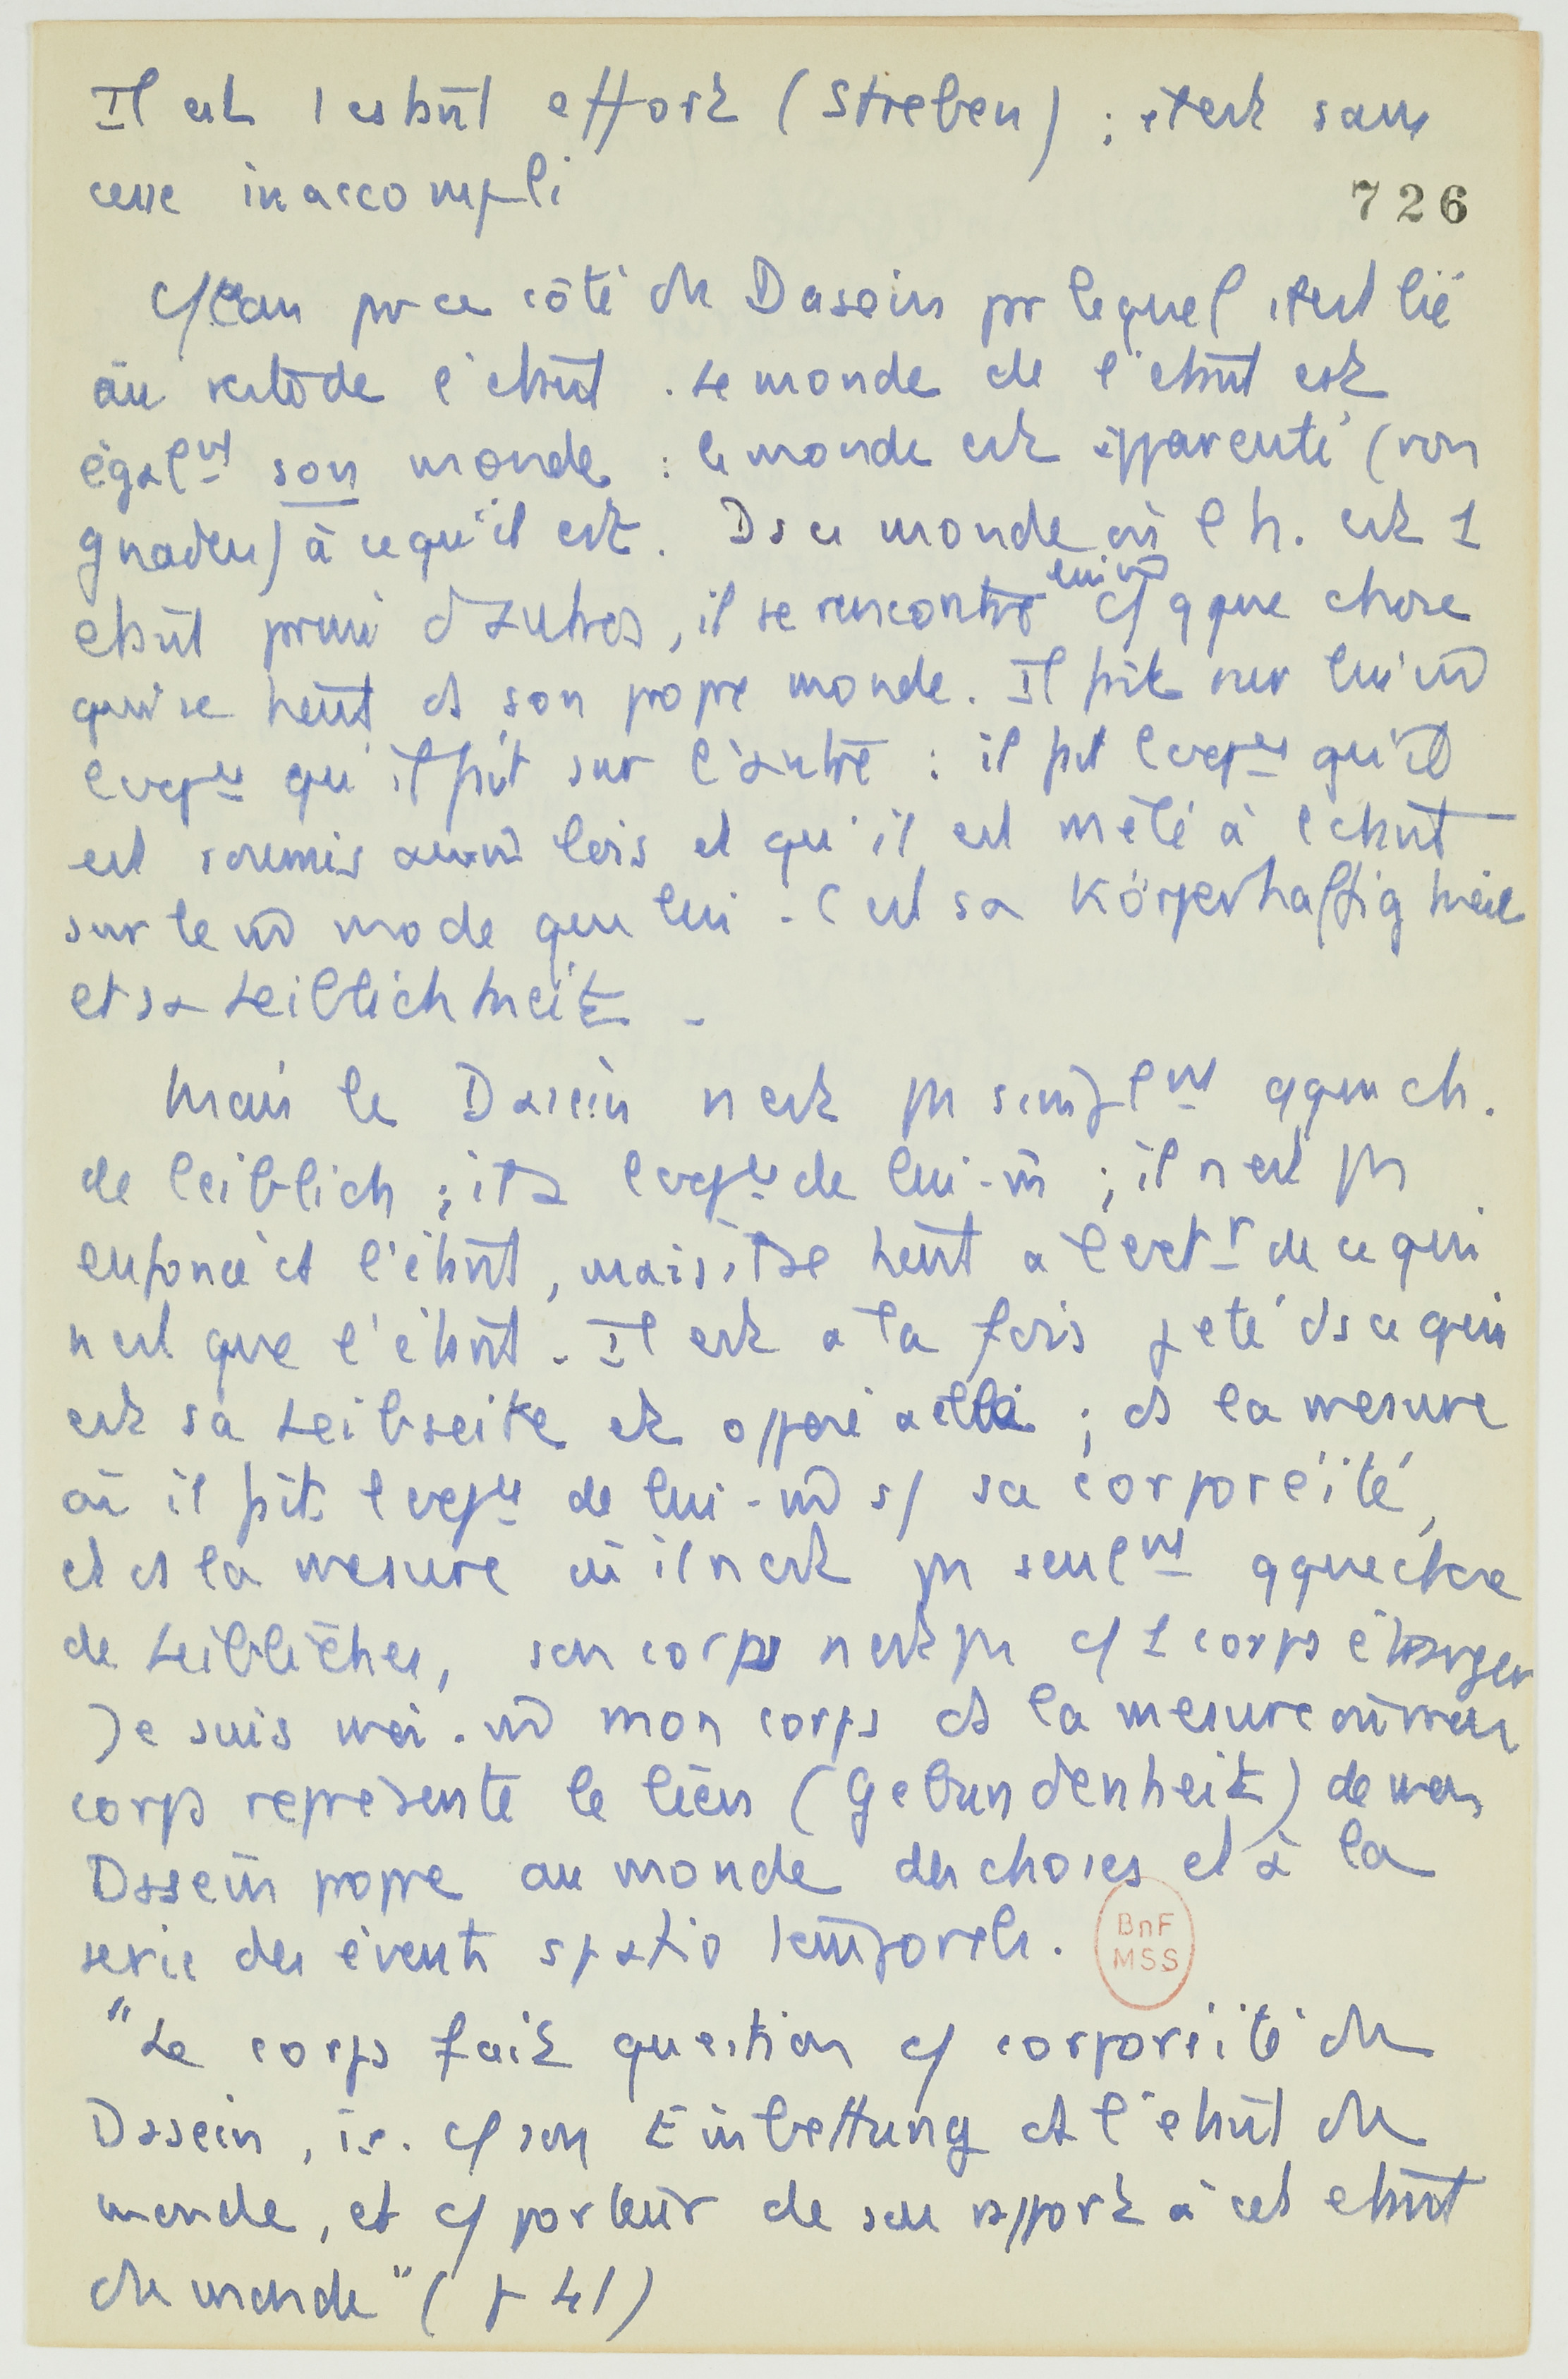 Il est 1 estūt effort (Streben) ; il est sans
cesse inaccompli
726
par ce côté du Dasein par lequel il est lié
au reste de l'étāt. Le monde de l'étāt est
égalemt son monde : le monde est apparenté (von
gnaden) à ce qu'il est. Ds ce monde où l'h. est 1
étāt parmi d'autres, il se rencontre lui m̄ c/ qque chose
qui se tient ds son propre monde. Il fait sur lui m̄
l'expce qu'il fait sur l'autre : il fait l'expce qu'il
est soumis aux m̄ lois et qu'il est mêlé à l'étāt
sur le m̄ mode que lui. C'est sa Körperhaftigkeit
et sa Leiblichkeit.
Mais le Dasein n'est pas simplemt qque ch.
de leiblich ; il a l'expce de lui-m̄ ; il n'est pas
enfoncé ds l'étāt, mais il se tient à l'extr de ce qui
n'est que l'étāt. Il est à la fois jeté ds ce qui
est sa Leibseite et opposé à elle ; ds la mesure
où il fait l'expce de lui-m̄ s/ sa corporéité,
et ds la mesure où il n'est pas seulemt qque chose
de Leibliches, son corps n'est pas c/ 1 corps étranger
Je suis moi-m̄ mon corps ds la mesure où mon
corps représente le lien (Gebundenheit) de mon
Dasein propre au monde des choses et à la
série des évents spatio temporels.
BnF
MSS
"Le corps fait question c/ corporéité du
Dasein, ie. c/ son Einbettung ds l'étāt du
monde, et c/ porteur de son rapport à cet étāt
du monde" (p 41)